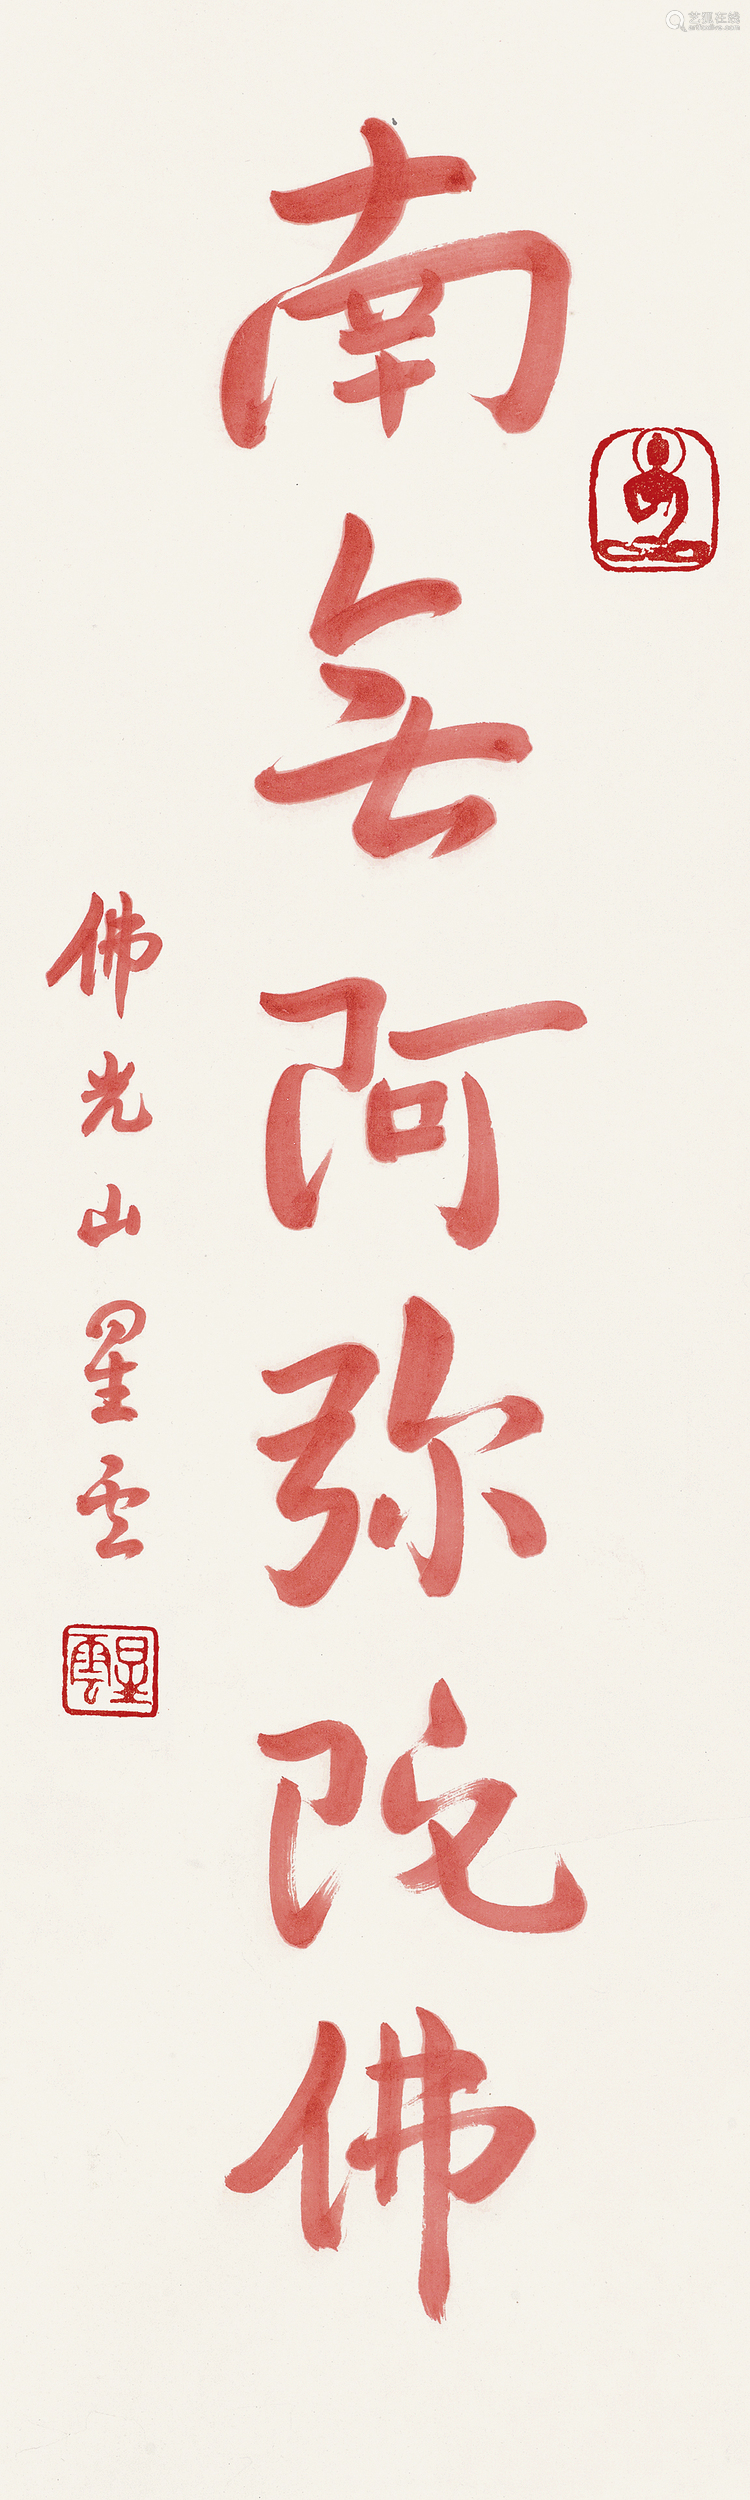 南無阿弥陀佛
佛光山星雲
星雲
艺狐在线
artfoxlive.com